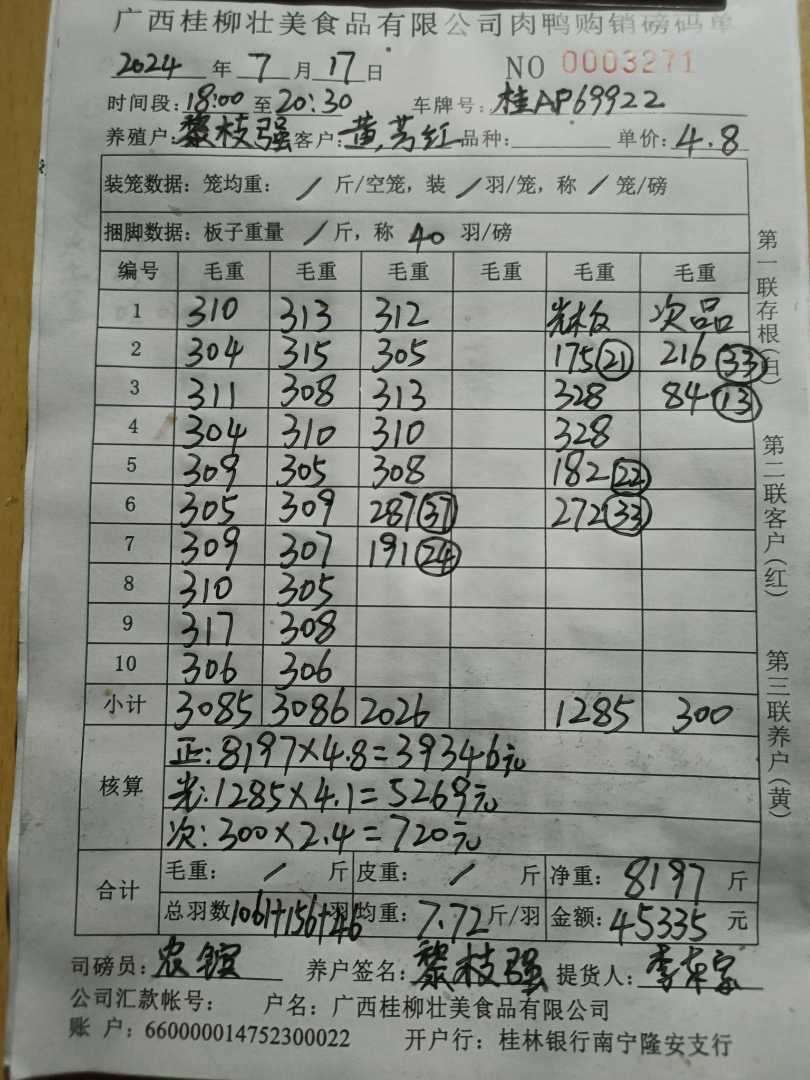 广西桂柳壮美食品有限公司肉鸭购销磅码单
2024 年 7 月 17 日 NO 0003271
时间段:18:00 至 20:30 车牌号: 桂AP69922
养殖户: 黎枝强 客户: 黄芳红 品种: 单价: 4.8
装笼数据: 笼均重: / 斤/空笼, 装 / 羽/笼, 称 / 笼/磅
捆脚数据: 板子重量 / 斤, 称 40 羽/磅
编号 毛重 毛重 毛重 毛重 毛重 毛重
1 310 313 312 光板 次品
2 304 315 305 175(21) 216(33)
3 311 308 313 328 84(13)
4 304 310 310 328
5 309 305 308 182(22)
6 305 309 287(37) 272(33)
7 309 307 191(24)
8 310 305
9 317 308
10 306 306
小计 3085 3086 2026 1285 300
核算 正:8197×4.8=39346元
光:1285×4.1=5269元
次:300×2.4=720元
合计 毛重: / 斤 皮重: / 斤 净重: 8197 斤
总羽数 1061+156+46 羽 均重: 7.72 斤/羽 金额: 45335 元
司磅员: 农 养户签名: 黎枝强 提货人: 李
公司汇款帐号: 户名:广西桂柳壮美食品有限公司
账 户: 660000014752300022 开户行: 桂林银行南宁隆安支行
第一联存根(白)
第二联客户(红)
第三联养户(黄)